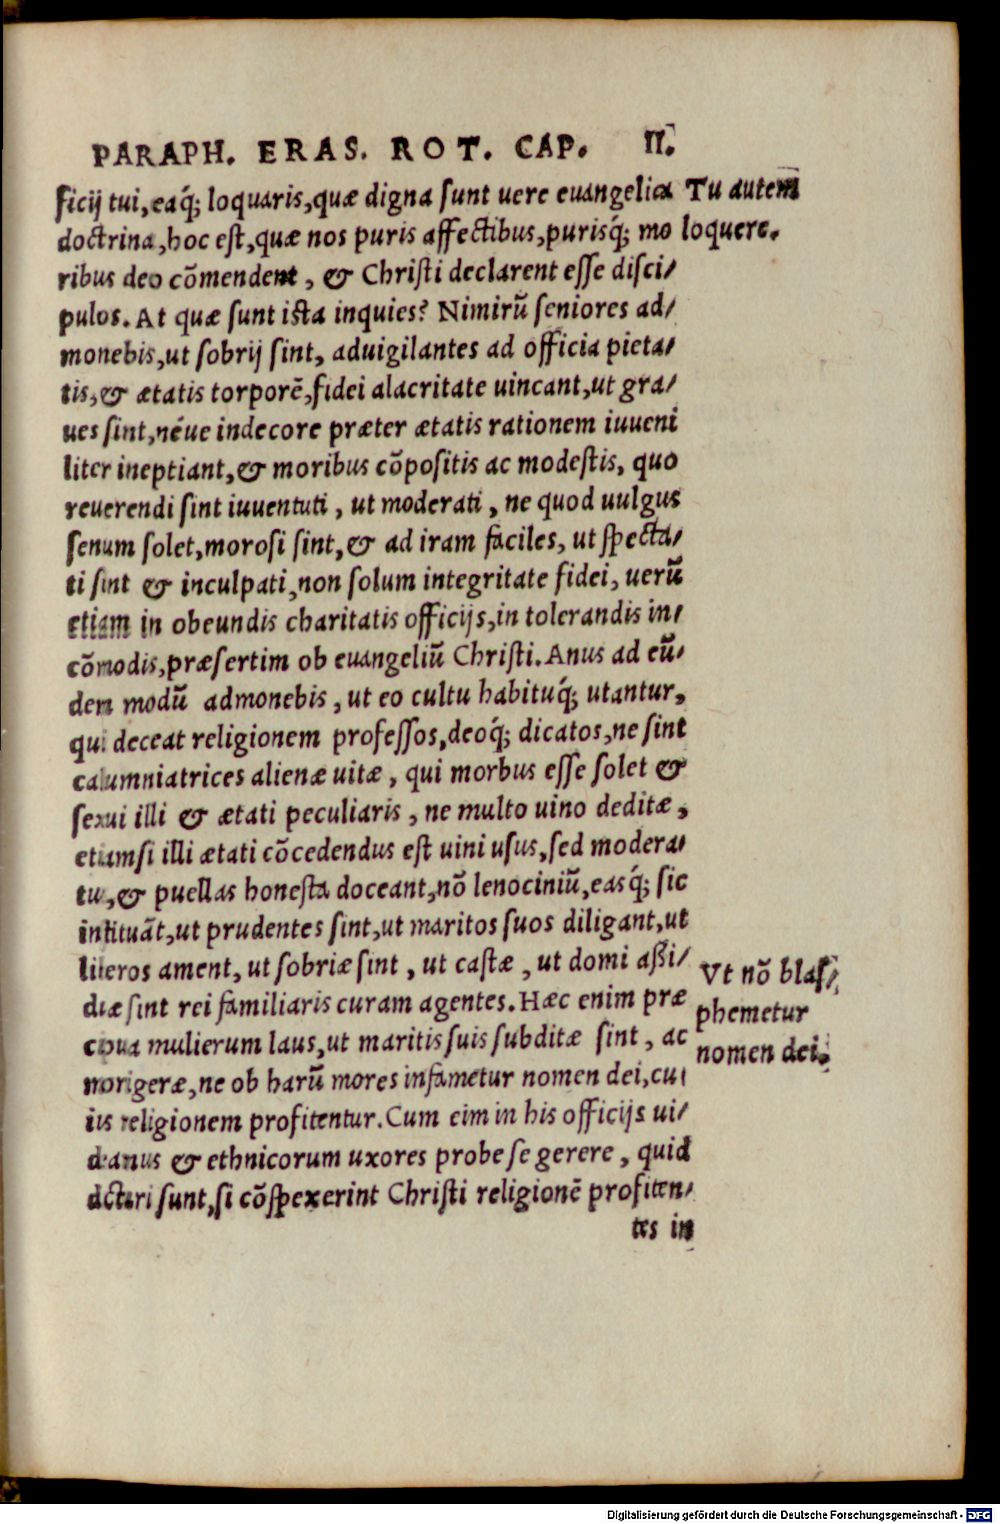 PARAPH. ERAS. ROT. CAP. II.
ficij tui, eaq́; loquaris, quæ digna sunt uere euangelica
Tu autem
doctrina, hoc est, quæ nos puris affectibus, purisq́; mo
loquere.
ribus deo cõmendent, & Christi declarent esse disci/
pulos. At quæ sunt ista inquies? Nimirũ seniores ad/
monebis, ut sobrij sint, aduigilantes ad officia pieta/
tis, & ætatis torporẽ, fidei alacritate uincant, ut gra/
ues sint, néue indecore præter ætatis rationem iuueni
liter ineptiant, & moribus cõpositis ac modestis, quo
reuerendi sint iuuentuti, ut moderati, ne quod uulgus
senum solet, morosi sint, & ad iram faciles, ut specta/
ti sint & inculpati, non solum integritate fidei, uerũ
etiam in obeundis charitatis officijs, in tolerandis in/
cõmodis, præsertim ob euangeliũ Christi. Anus ad eũ/
dem modũ admonebis, ut eo cultu habituq́; utantur,
qui deceat religionem professos, deoq́; dicatos, ne sint
calumniatrices alienæ uitæ, qui morbus esse solet &
sexui illi & ætati peculiaris, ne multo uino deditæ,
etiamsi illi ætati cõcedendus est uini usus, sed modera/
tu, & puellas honesta doceant, nõ lenociniũ, easq́; sic
intituãt, ut prudentes sint, ut maritos suos diligant, ut
liberos ament, ut sobriæ sint, ut castæ, ut domi assi/
duæ sint rei familiaris curam agentes. Hæc enim præ
cipua mulierum laus, ut maritis suis subditæ sint, ac
morigeræ, ne ob harũ mores infametur nomen dei, cu
ius religionem profitentur. Cum eim in his officijs ui/
deamus & ethnicorum uxores probe se gerere, quid
dicturi sunt, si cõspexerint Christi religionẽ profiten/
tes in
Vt nõ blas/
phemetur
nomen dei.
Digitalisierung gefördert durch die Deutsche Forschungsgemeinschaft - DFG